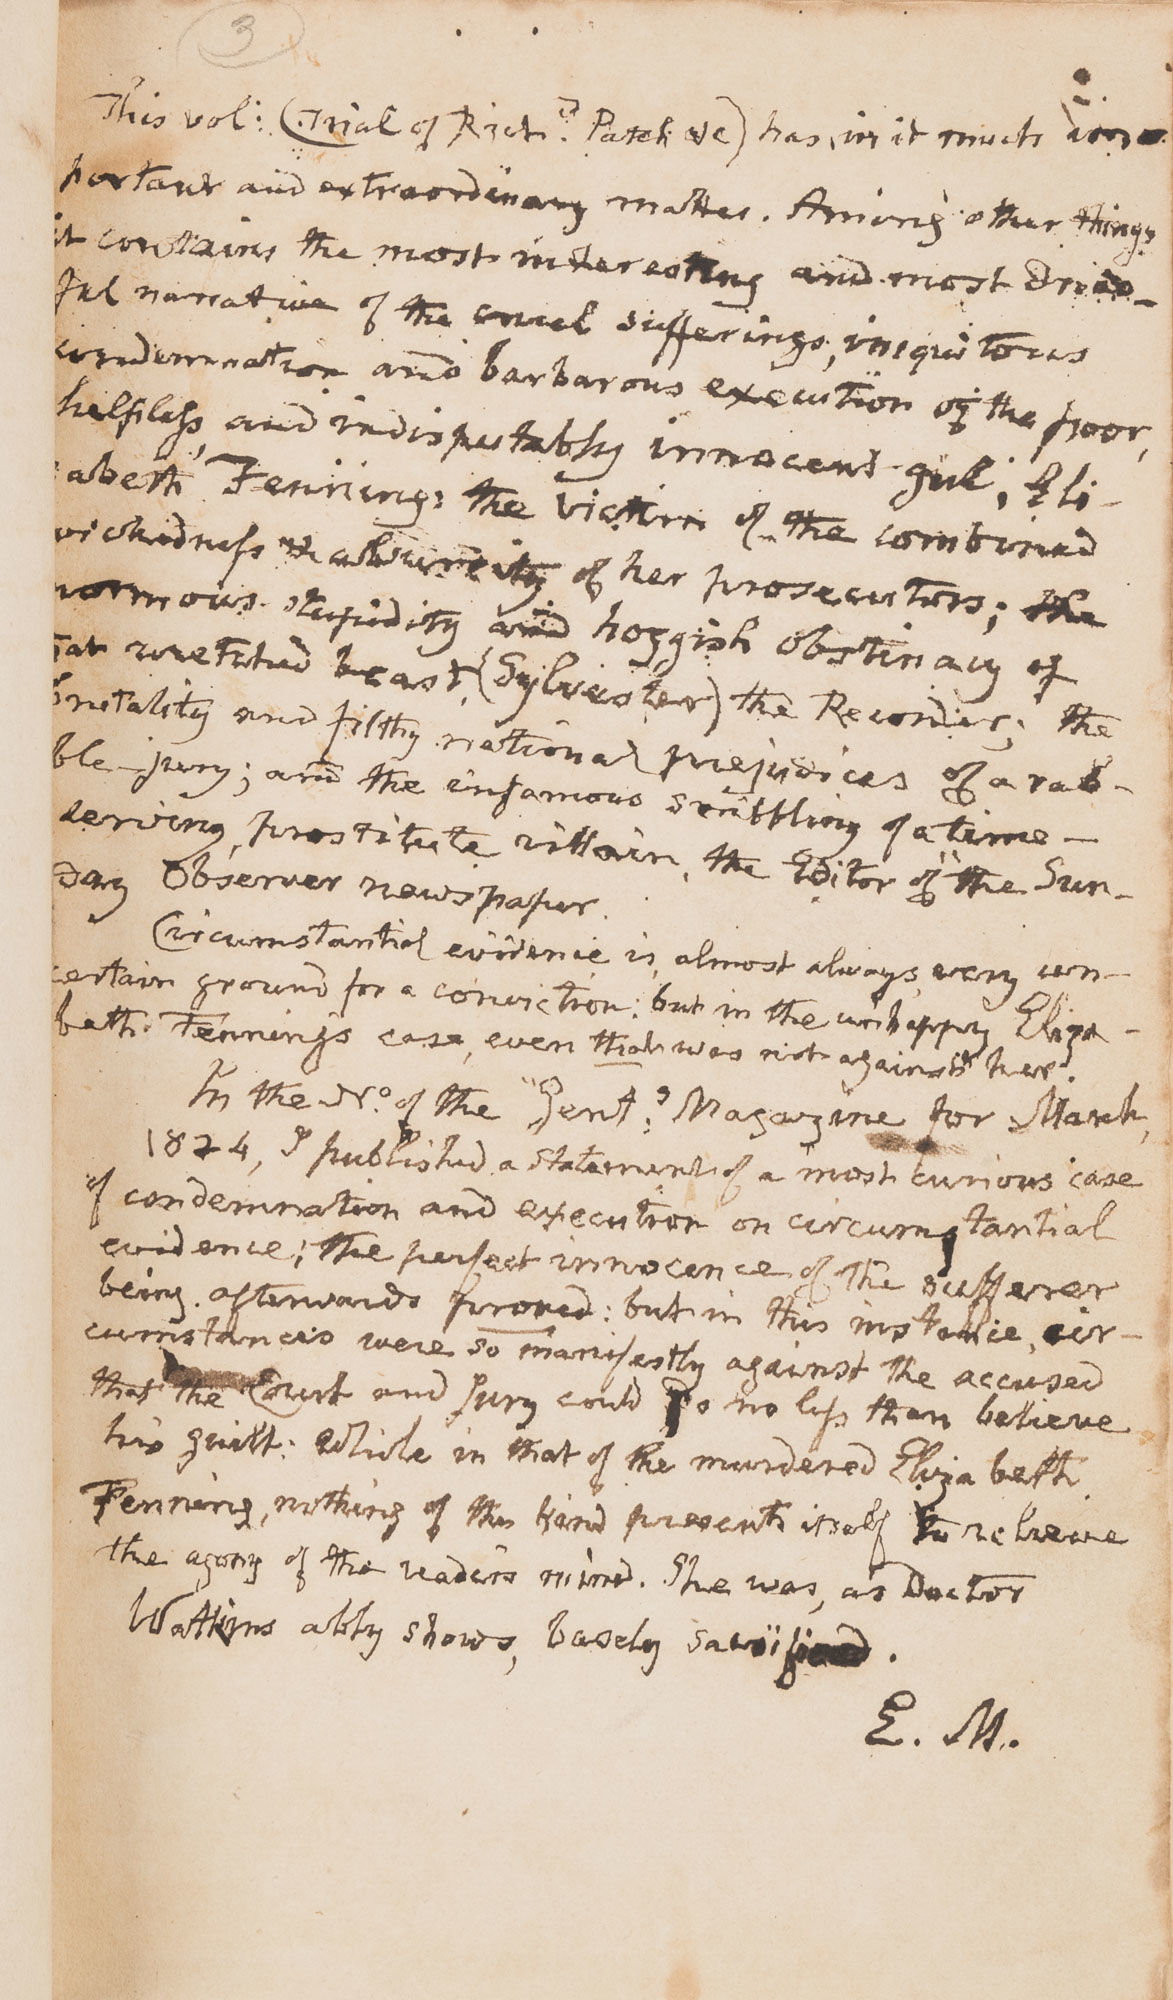 3
This vol: (Trial of Richd. Patch &c) has in it much im-
portant and extraordinary matter. Among other things
it contains the most interesting and most dread-
ful narrative of the cruel sufferings, iniquitous
condemnation and barbarous execution of the poor,
helpless, and indisputably innocent girl, Eli-
zabeth Fenning: the victim of the combined
wickedness & absurdity of her prosecutors; the
enormous stupidity and hoggish obstinacy of
that wretched beast, (Sylvester) the Recorder; the
brutality and filthy national prejudices of a rab-
ble-jury; and the infamous scribbling of a time-
serving, prostitute villain, the Editor of "the Sun-
day Observer newspaper.
Circumstantial evidence is, almost always, very un-
certain ground for a conviction: but in the unhappy Eliza-
beth Fenning's case, even that was not against her.
In the No. of the "Gent.s Magazine for March,
1824, I published a statement of a most curious case
of condemnation and execution on circumstantial
evidence; the perfect innocence of the sufferer
being afterwards proved: but in this instance, cir-
cumstances were so manifestly against the accused
that the Court and Jury could do no less than believe
his guilt: While in that of the murdered Elizabeth
Fenning, nothing of this kind presents itself to relieve
the agony of the reader's mind. She was, as Doctor
Watkins ably shows, basely sacrificed.
E. M.